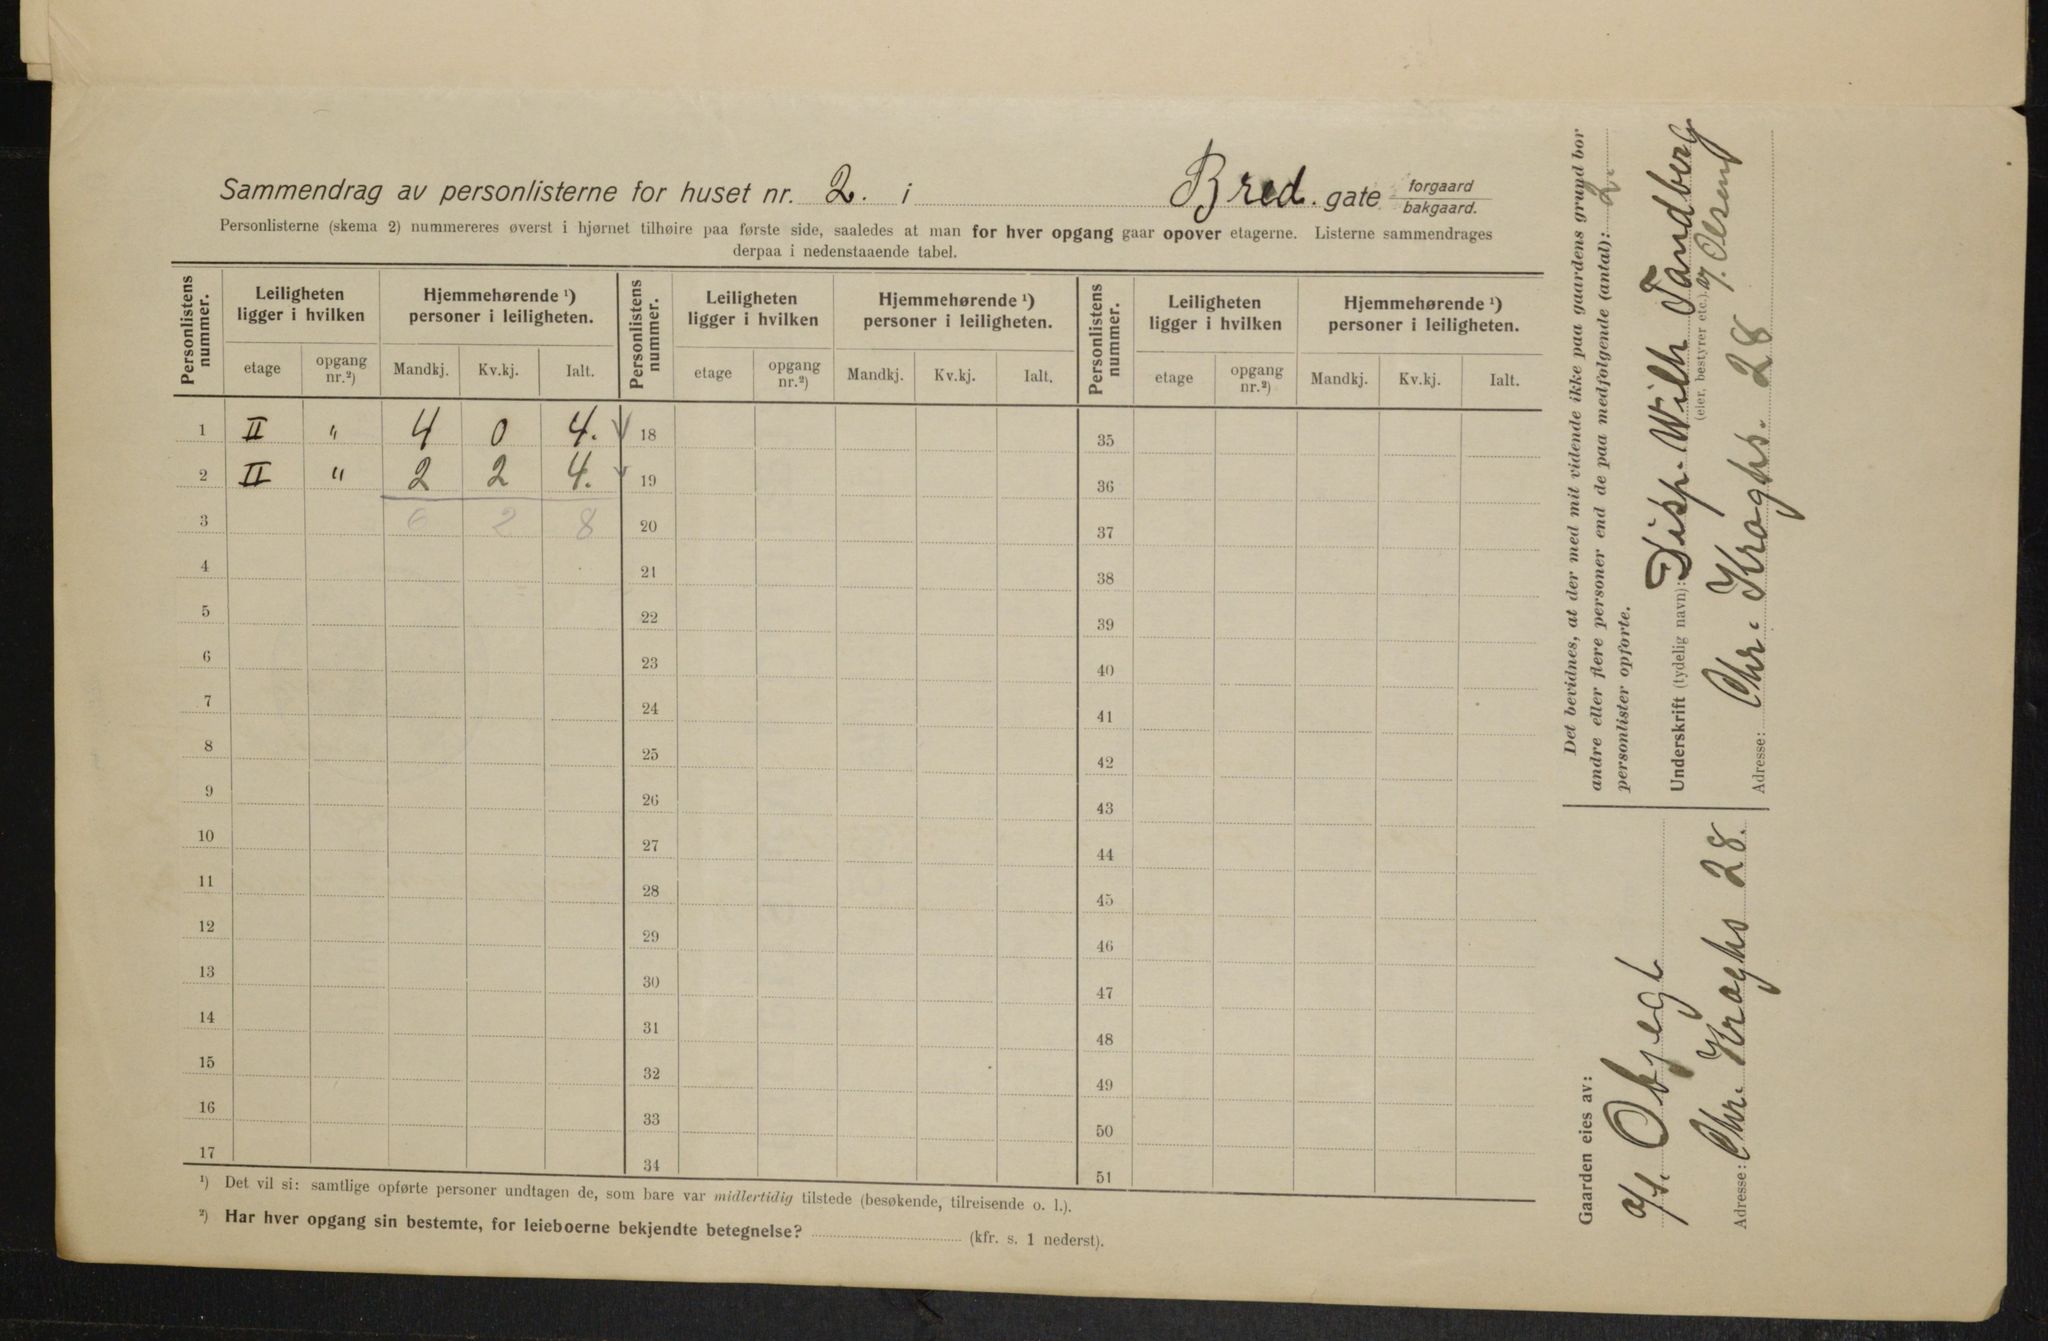 Sammendrag av personlisterne for huset nr. 2. i Bred. gate forgaard bakgaard.
Personlisterne (skema 2) nummereres øverst i hjørnet tilhøire paa første side, saaledes at man for hver opgang gaar opover etagerne. Listerne sammendrages
derpaa i nedenstaaende tabel.
Personlistens nummer. Leiligheten ligger i hvilken Hjemmehørende ¹) personer i leiligheten. Personlistens nummer. Leiligheten ligger i hvilken Hjemmehørende ¹) personer i leiligheten. Personlistens nummer. Leiligheten ligger i hvilken Hjemmehørende ¹) personer i leiligheten.
etage opgang nr.²) Mandkj. Kv.kj. Ialt. etage opgang nr.²) Mandkj. Kv.kj. Ialt. etage opgang nr.²) Mandkj. Kv.kj. Ialt.
1 II " 4 0 4. 18 35
2 II " 2 2 4. 19 36
3 6 2 8 20 37
4 21 38
5 22 39
6 23 40
7 24 41
8 25 42
9 26 43
10 27 44
11 28 45
12 29 46
13 30 47
14 31 48
15 32 49
16 33 50
17 34 51
¹) Det vil si: samtlige opførte personer undtagen de, som bare var midlertidig tilstede (besøkende, tilreisende o. l.).
²) Har hver opgang sin bestemte, for leieboerne bekjendte betegnelse? (kfr. s. 1 nederst).
Det bevidnes, at der med mit vidende ikke paa gaardens grund bor
andre eller flere personer end de paa medfølgende (antal): 2.
personlister opførte.
Underskrift (tydelig navn): Disp. Wilh Tandberg
(eier, bestyrer etc.). Olsen
Adresse: Chr. Kroghs. 28
Gaarden eies av:
a/s. Objegt
Adresse: Chr. Kroghs 28.